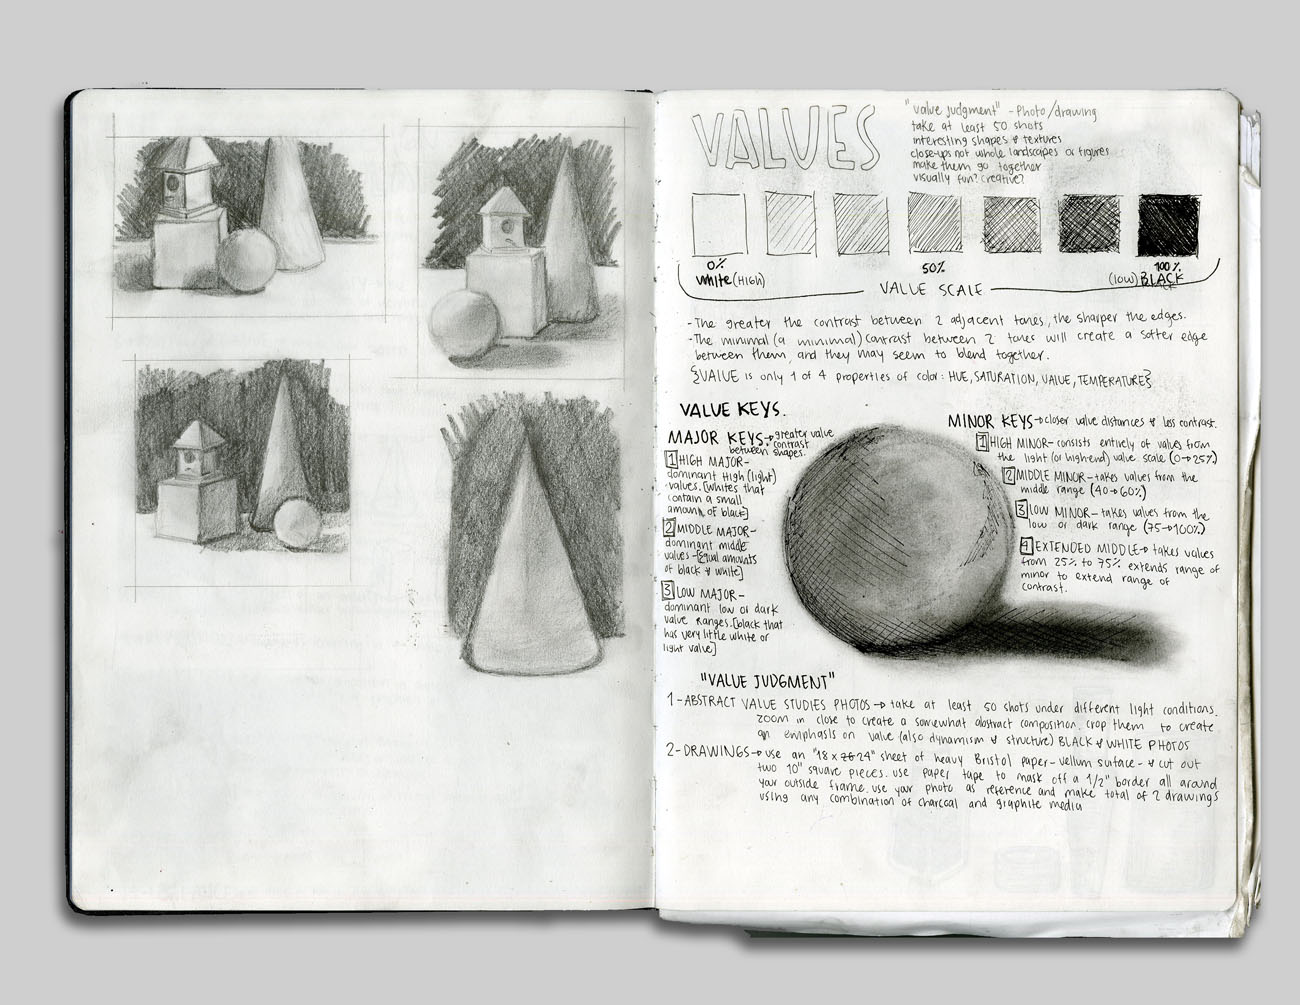 VALUES
"value judgment" - Photo/drawing
take at least 50 shots
interesting shapes & textures
close-ups not whole landscapes or figures
make them go together
visually fun? creative?
0% 50% 100%
white (HIGH) (low) BLACK
VALUE SCALE
- The greater the contrast between 2 adjacent tones, the sharper the edges.
- The minimal (a minimal) contrast between 2 tones will create a softer edge
between them, and they may seem to blend together.
{VALUE is only 1 of 4 properties of color: HUE, SATURATION, VALUE, TEMPERATURE}
VALUE KEYS.
MAJOR KEYS→greater value
contrast
between shapes.
1 HIGH MAJOR-
dominant High (light)
values. [whites that
contain a small
amount of black]
2 MIDDLE MAJOR-
dominant middle
values-[Equal amounts
of black & white]
3 LOW MAJOR-
dominant low or dark
value ranges. [black that
has very little white or
light value]
MINOR KEYS→closer value distances & less contrast.
1 HIGH MINOR- consists entirely of values from
the light (or high-end) value scale (0→25%)
2 MIDDLE MINOR- takes values from the
middle range (40→60%)
3 LOW MINOR- takes values from the
low or dark range (75→100%)
4 EXTENDED MIDDLE→ takes values
from 25% to 75% extends range of
minor to extend range of
contrast.
"VALUE JUDGMENT"
1- ABSTRACT VALUE STUDIES PHOTOS → take at least 50 shots under different light conditions.
zoom in close to create a somewhat abstract composition. crop them to create
an emphasis on value (also dynamism & structure) BLACK & WHITE PHOTOS
2- DRAWINGS→ use an "18 x 24" sheet of heavy Bristol paper- vellum surface- & cut out
two 10" square pieces. use paper tape to mask off a 1/2" border all around
your outside frame. use your photo as reference and make total of 2 drawings
using any combination of charcoal and graphite media